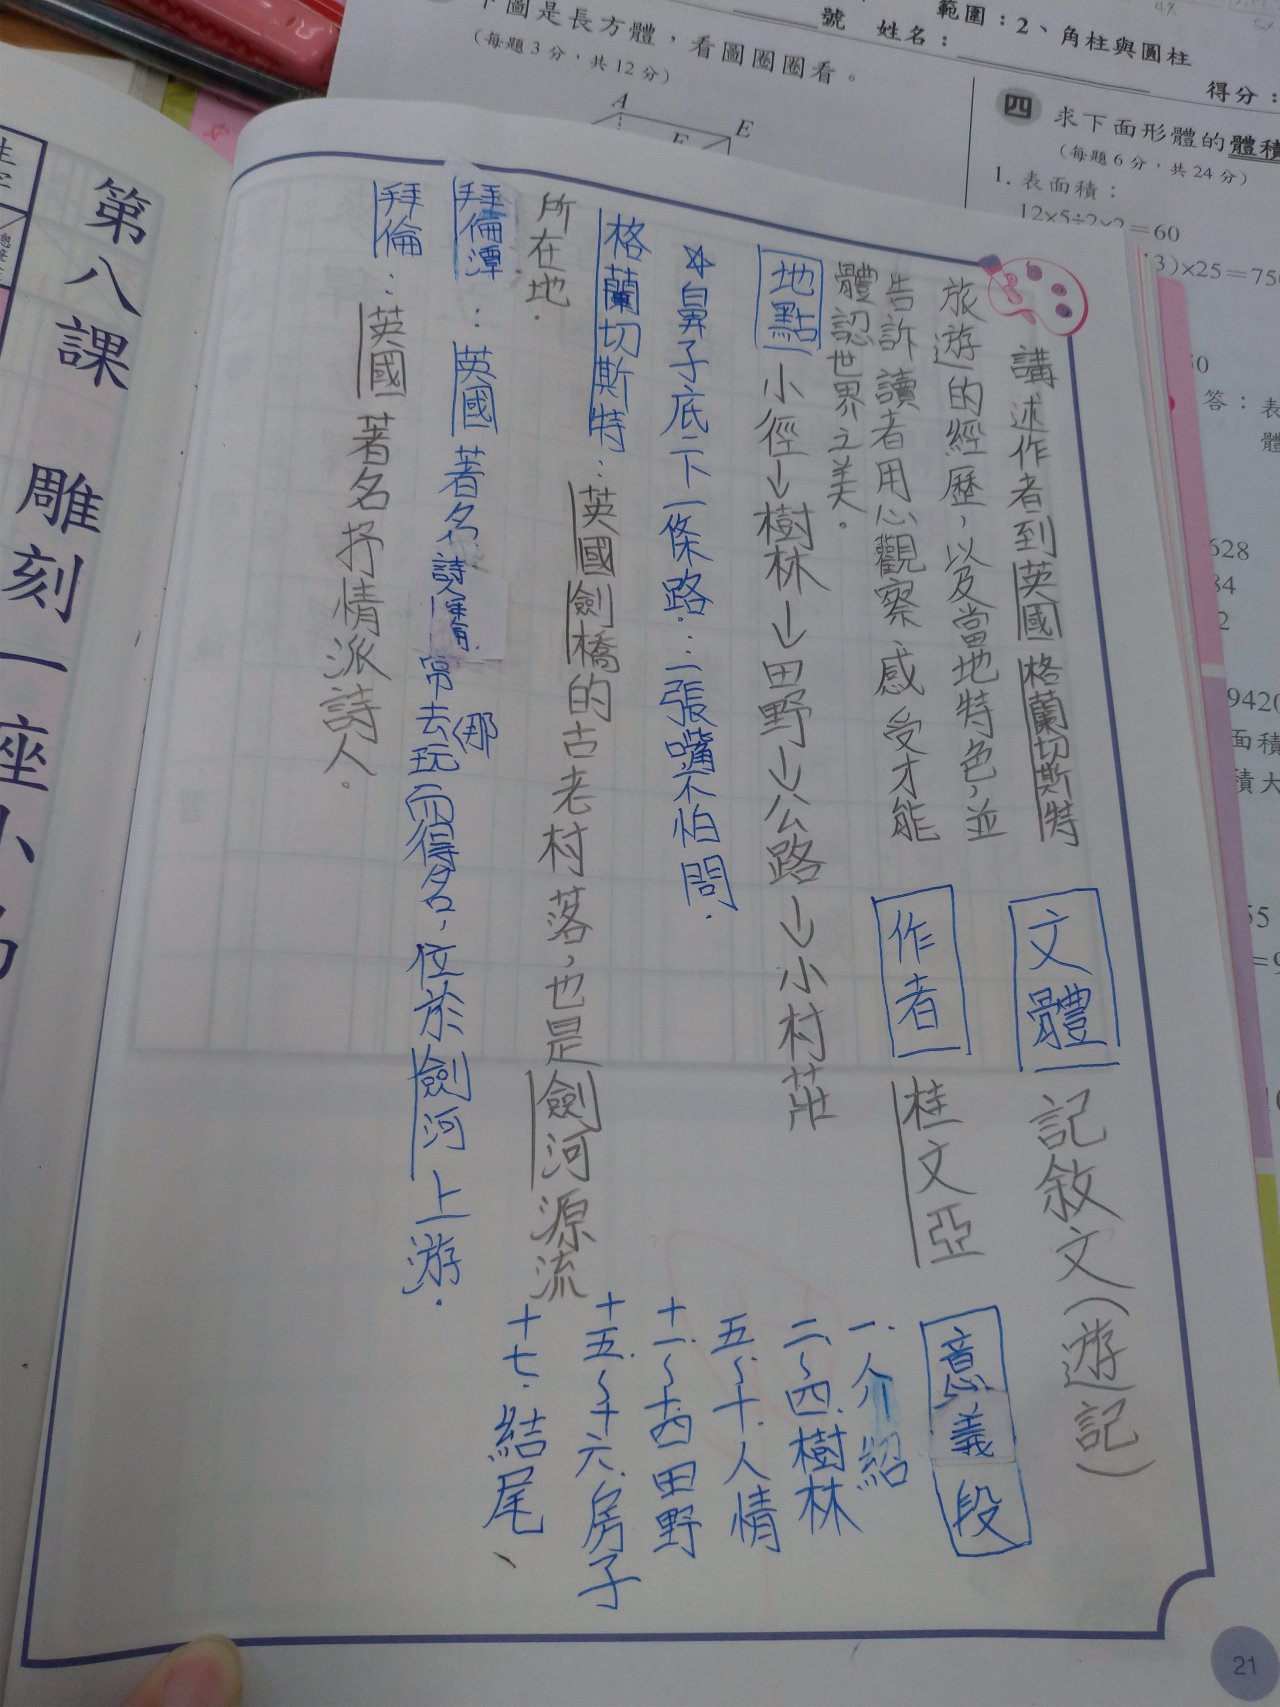 下圖是長方體，看圖圈圈看。
（每題3分，共12分）
A
E
號　姓名：
範圍：2、角柱與圓柱
得分：
四　求下面形體的體積
（每題6分，共24分）
1. 表面積：
12×5÷2×2＝60
3)×25＝750
答：表
體
628
84
9420
面積
積大
55
講述作者到英國格蘭切斯特
旅遊的經歷，以及當地特色，並
告訴讀者用心觀察、感受才能
體認世界之美。
文體　記敘文（遊記）
作者　桂文亞
意義段
一、介紹
二～四、樹林
五～十、人情
十一～十四田野
十五～十六、房子
十七、結尾、
地點　小徑→樹林→田野→公路→小村莊
☆鼻子底下一條路：一張嘴不怕問．
格蘭切斯特：英國劍橋的古老村落，也是劍河源流
所在地．
拜倫潭：英國著名詩人拜倫常去那玩而得名，位於劍河上游．
拜倫：英國著名抒情派詩人。
第八課　雕刻一座小
21